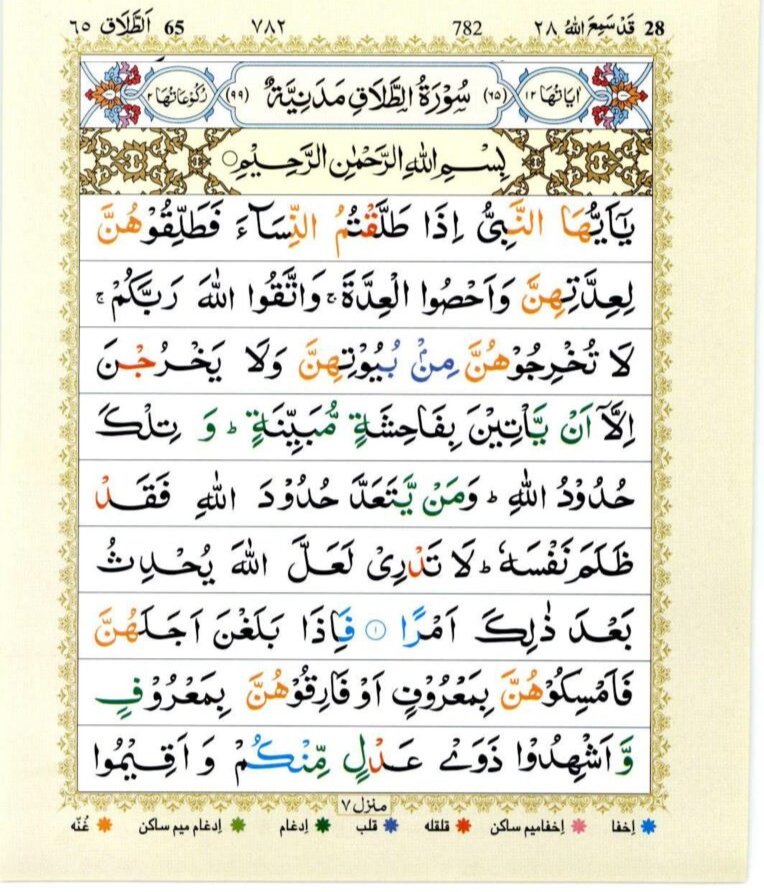 28 قَدْ سَمِعَ اللّٰهُ ٢٨ 782 ٧٨٢ 65 اَلطَّلَاق ٦٥
اٰيَاتُهَا ١٢ (٦٥) سُوْرَةُ الطَّلَاقِ مَدَنِيَّةٌ (٩٩) رُكُوْعَاتُهَا ٢
بِسْمِ اللّٰهِ الرَّحْمٰنِ الرَّحِيْمِ
يٰۤاَيُّهَا النَّبِىُّ اِذَا طَلَّقْتُمُ النِّسَآءَ فَطَلِّقُوْهُنَّ
لِعِدَّتِهِنَّ وَاَحْصُوا الْعِدَّةَ ۚ وَاتَّقُوا اللّٰهَ رَبَّكُمْ ۚ
لَا تُخْرِجُوْهُنَّ مِنْۢ بُيُوْتِهِنَّ وَلَا يَخْرُجْنَ
اِلَّاۤ اَنْ يَّاْتِيْنَ بِفَاحِشَةٍ مُّبَيِّنَةٍ ؕ وَ تِلْكَ
حُدُوْدُ اللّٰهِ ؕ وَمَنْ يَّتَعَدَّ حُدُوْدَ اللّٰهِ فَقَدْ
ظَلَمَ نَفْسَهٗ ؕ لَا تَدْرِىْ لَعَلَّ اللّٰهَ يُحْدِثُ
بَعْدَ ذٰلِكَ اَمْرًا ۝١ فَاِذَا بَلَغْنَ اَجَلَهُنَّ
فَاَمْسِكُوْهُنَّ بِمَعْرُوْفٍ اَوْ فَارِقُوْهُنَّ بِمَعْرُوْفٍ
وَّاَشْهِدُوْا ذَوَىْ عَدْلٍ مِّنْكُمْ وَ اَقِيْمُوا
منزل ٧
اِخفا اِخفامیم ساکن قلقله قلب اِدغام اِدغام میم ساکن غُنّه